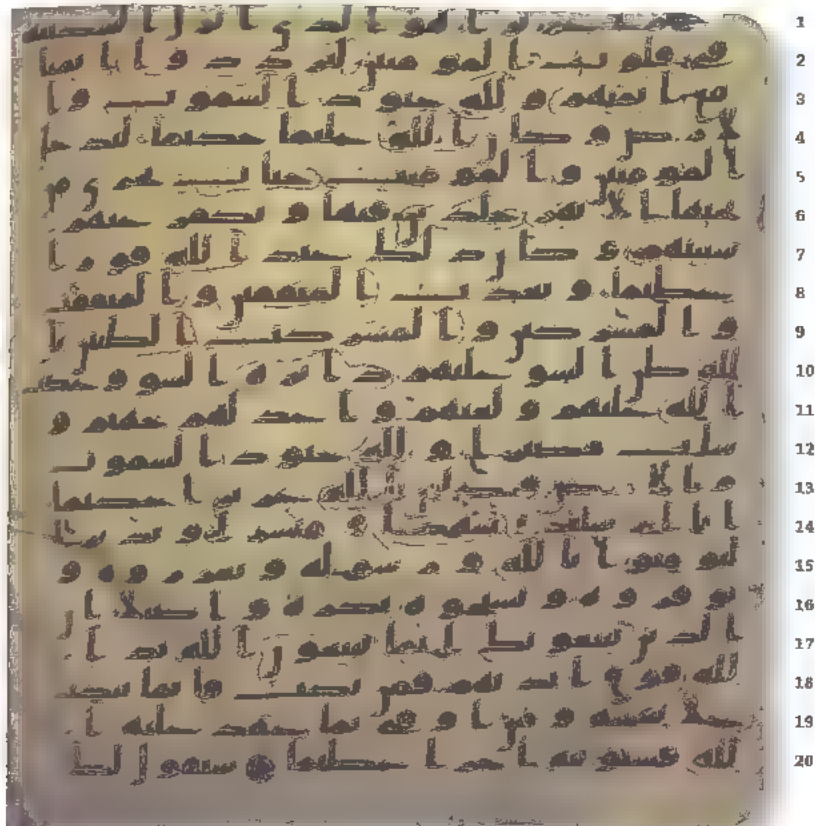 هو الذي انزل السكينه
في قلوب المومنين ليزدادوا ايمنا
مع ايمنهم ولله جنود السموت وا
لارض وكان الله عليما حكيما ليدخل
المومنين والمومنت جنت تجري من
تحتها الانهر خلدين فيها ويكفر عنهم
سيتهم وكان ذلك عند الله فوزا
عظيما ويعذب المنفقين والمنفقت
والمشركين والمشركت الظنين با
لله ظن السو عليهم دايره السو وغضب
الله عليهم ولعنهم واعد لهم جهنم و
سات مصيرا ولله جنود السموت
والارض وكان الله عزيزا حكيما
انا ارسلنك شهدا ومبشرا ونذيرا
لتومنوا بالله ورسوله وتعزروه و
توقروه وتسبحوه بكره واصيلا ان
الذين يبيعونك انما يبيعون الله يد ا
لله فوق ايديهم فمن نكث فانما ينكث
على نفسه ومن اوفى بما عهد عليه ا
لله فسنوتيه اجرا عظيما سيقول لك